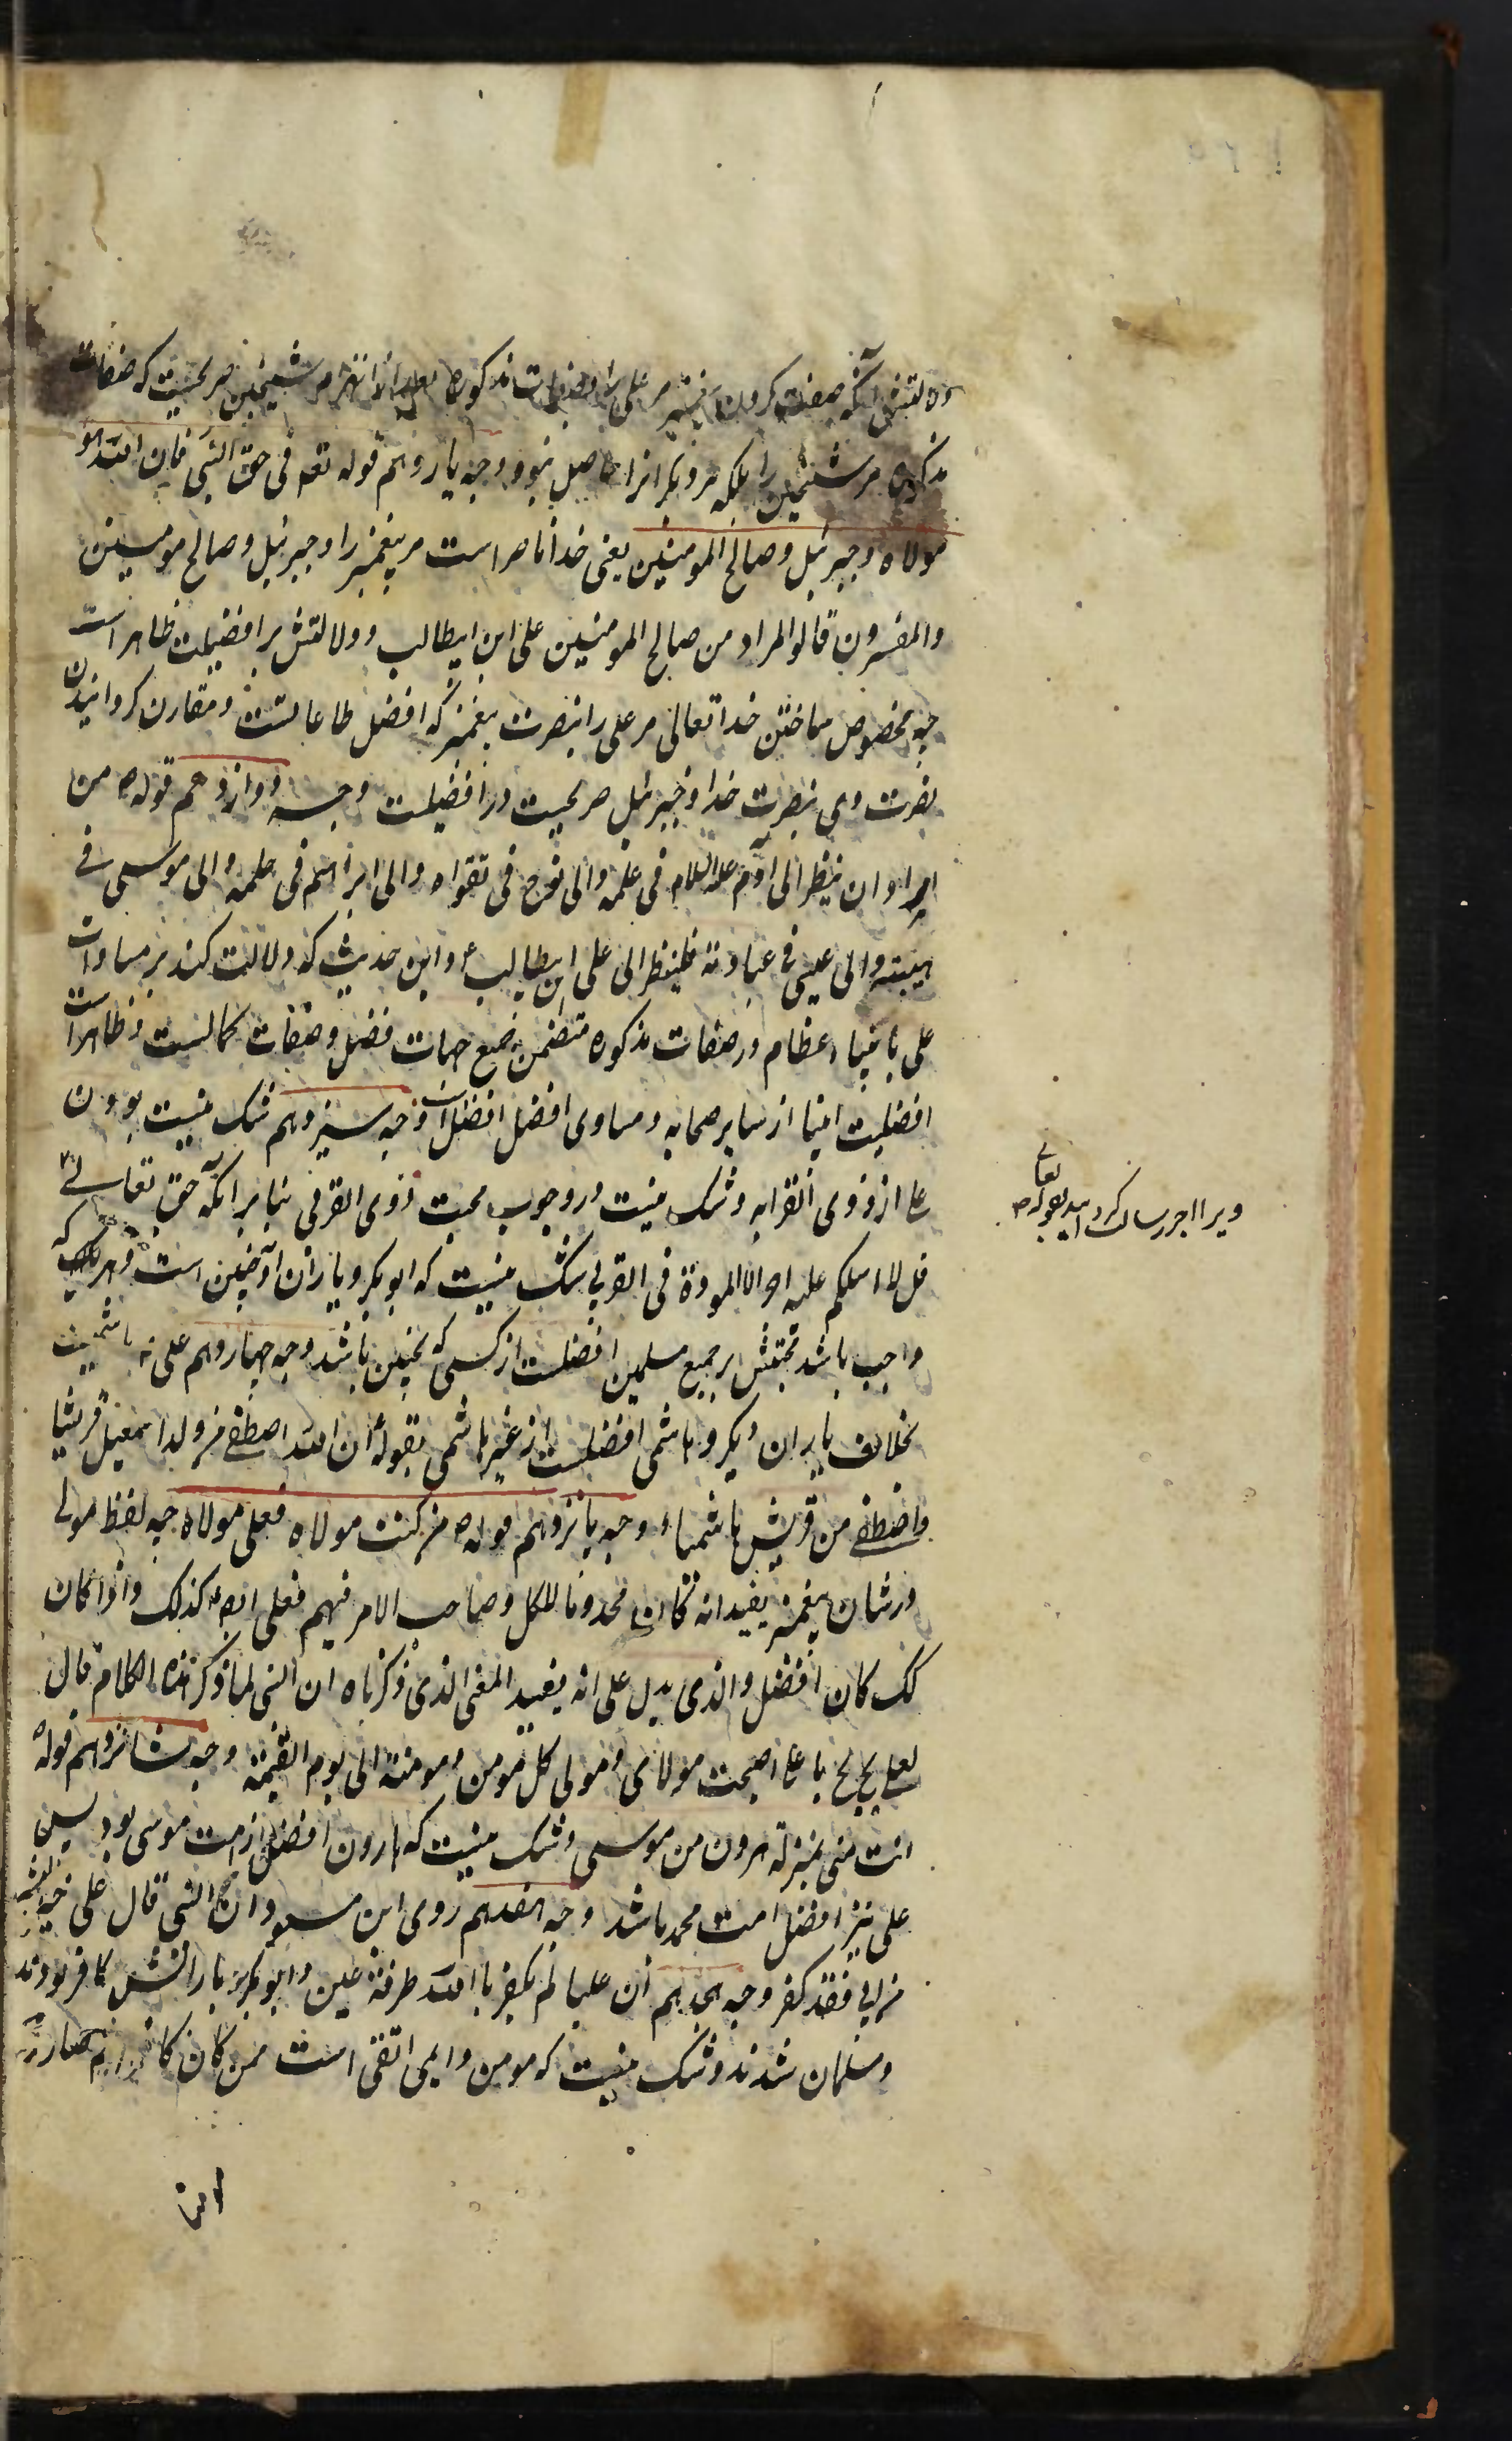 که صفت کردن پیغمبر مر علی را بصفات مذکوره بعد از انهزام شیخین صریحست که صفات
مذکوره مر شیخین را بلکه مر دیگرانرا حاصل نبود وجه یازدهم قوله تعم فی حق النبی فان الله هو
مولاه وجبرئیل وصالح المومنین یعنی خدا ناصر است مر پیغمبر را وجبرئیل وصالح مومنین
والمفسرون قالوا المراد من صالح المومنین علی ابن ابیطالب ودلالتش بر افضلیت ظاهر است
چه مخصوص ساختن خدا تعالی مر علی را بنصرت پیغمبر که افضل طاعاتست ومقارن کردانیدن
نصرت وی بنصرت خدا وجبرئیل صریحست در افضلیت وجه دوازدهم قوله ص من
اراد ان ینظر الی آدم علیه السلام فی علمه والی نوح فی تقواه والی ابراهیم فی حلمه والی موسی فی
هیبته والی عیسی فی عبادته فلینظر الی علی ابن ابیطالب ع واین حدیث که دلالت کند بر مساوات
علی بانبیاء عظام در صفات مذکوره متضمن جمیع جهات فضل وصفات کمالست وظاهر است
افضلیت انبیا از سایر صحابه ومساوی افضل افضل است وجه سیزدهم شک نیست بودن
علی از ذوی القرابه وشک نیست در وجوب محبت ذوی القربی بنابر آنکه حق تعالی
ویرا اجر رسالت کردانید بقوله تعالی
قل لا اسلکم علیه اجرا الا المودة فی القربی شک نیست که ابوبکر ویاران او چنین است وهر که
واجب باشد محبتش بر جمیع مسلمین افضلست از کسی که نچنین باشد وجه چهاردهم علی هاشمیست
بخلاف یاران دیکر وهاشمی افضلست از غیر هاشمی بقوله ان الله اصطفی من ولد اسمعیل قریشا
واصطفی من قریش هاشما وجه پانزدهم قوله ص من کنت مولاه فعلی مولاه چه لفظ مولی
در شان پیغمبر یفید انه کان مخدوما للکل وصاحب الامر فیهم فعلی ایضا کذلک واذا کان
کک کان افضل والذی یدل علی انه یفید المعنی الذی ذکرناه ان النبی لما ذکر هذا الکلام قال
لعلی بخ بخ یا علی اصبحت مولای ومولی کل مومن ومومنة الی یوم القیمة وجه شانزدهم قوله
انت منی بمنزلة هرون من موسی وشک نیست که هارون افضل از امت موسی بود پس
علی نیز افضل امت محمد باشد وجه هفدهم روی ابن مسعود ان النبی قال علی خیر البشر
من ابی فقد کفر وجه هجدهم ان علیا لم یکفر بالله طرفة عین وابوبکر با یارانش کافر بودند
ومسلمان شدند وشک نیست که مومن دایمی اتقی است ممن کان کافرا ثم صار